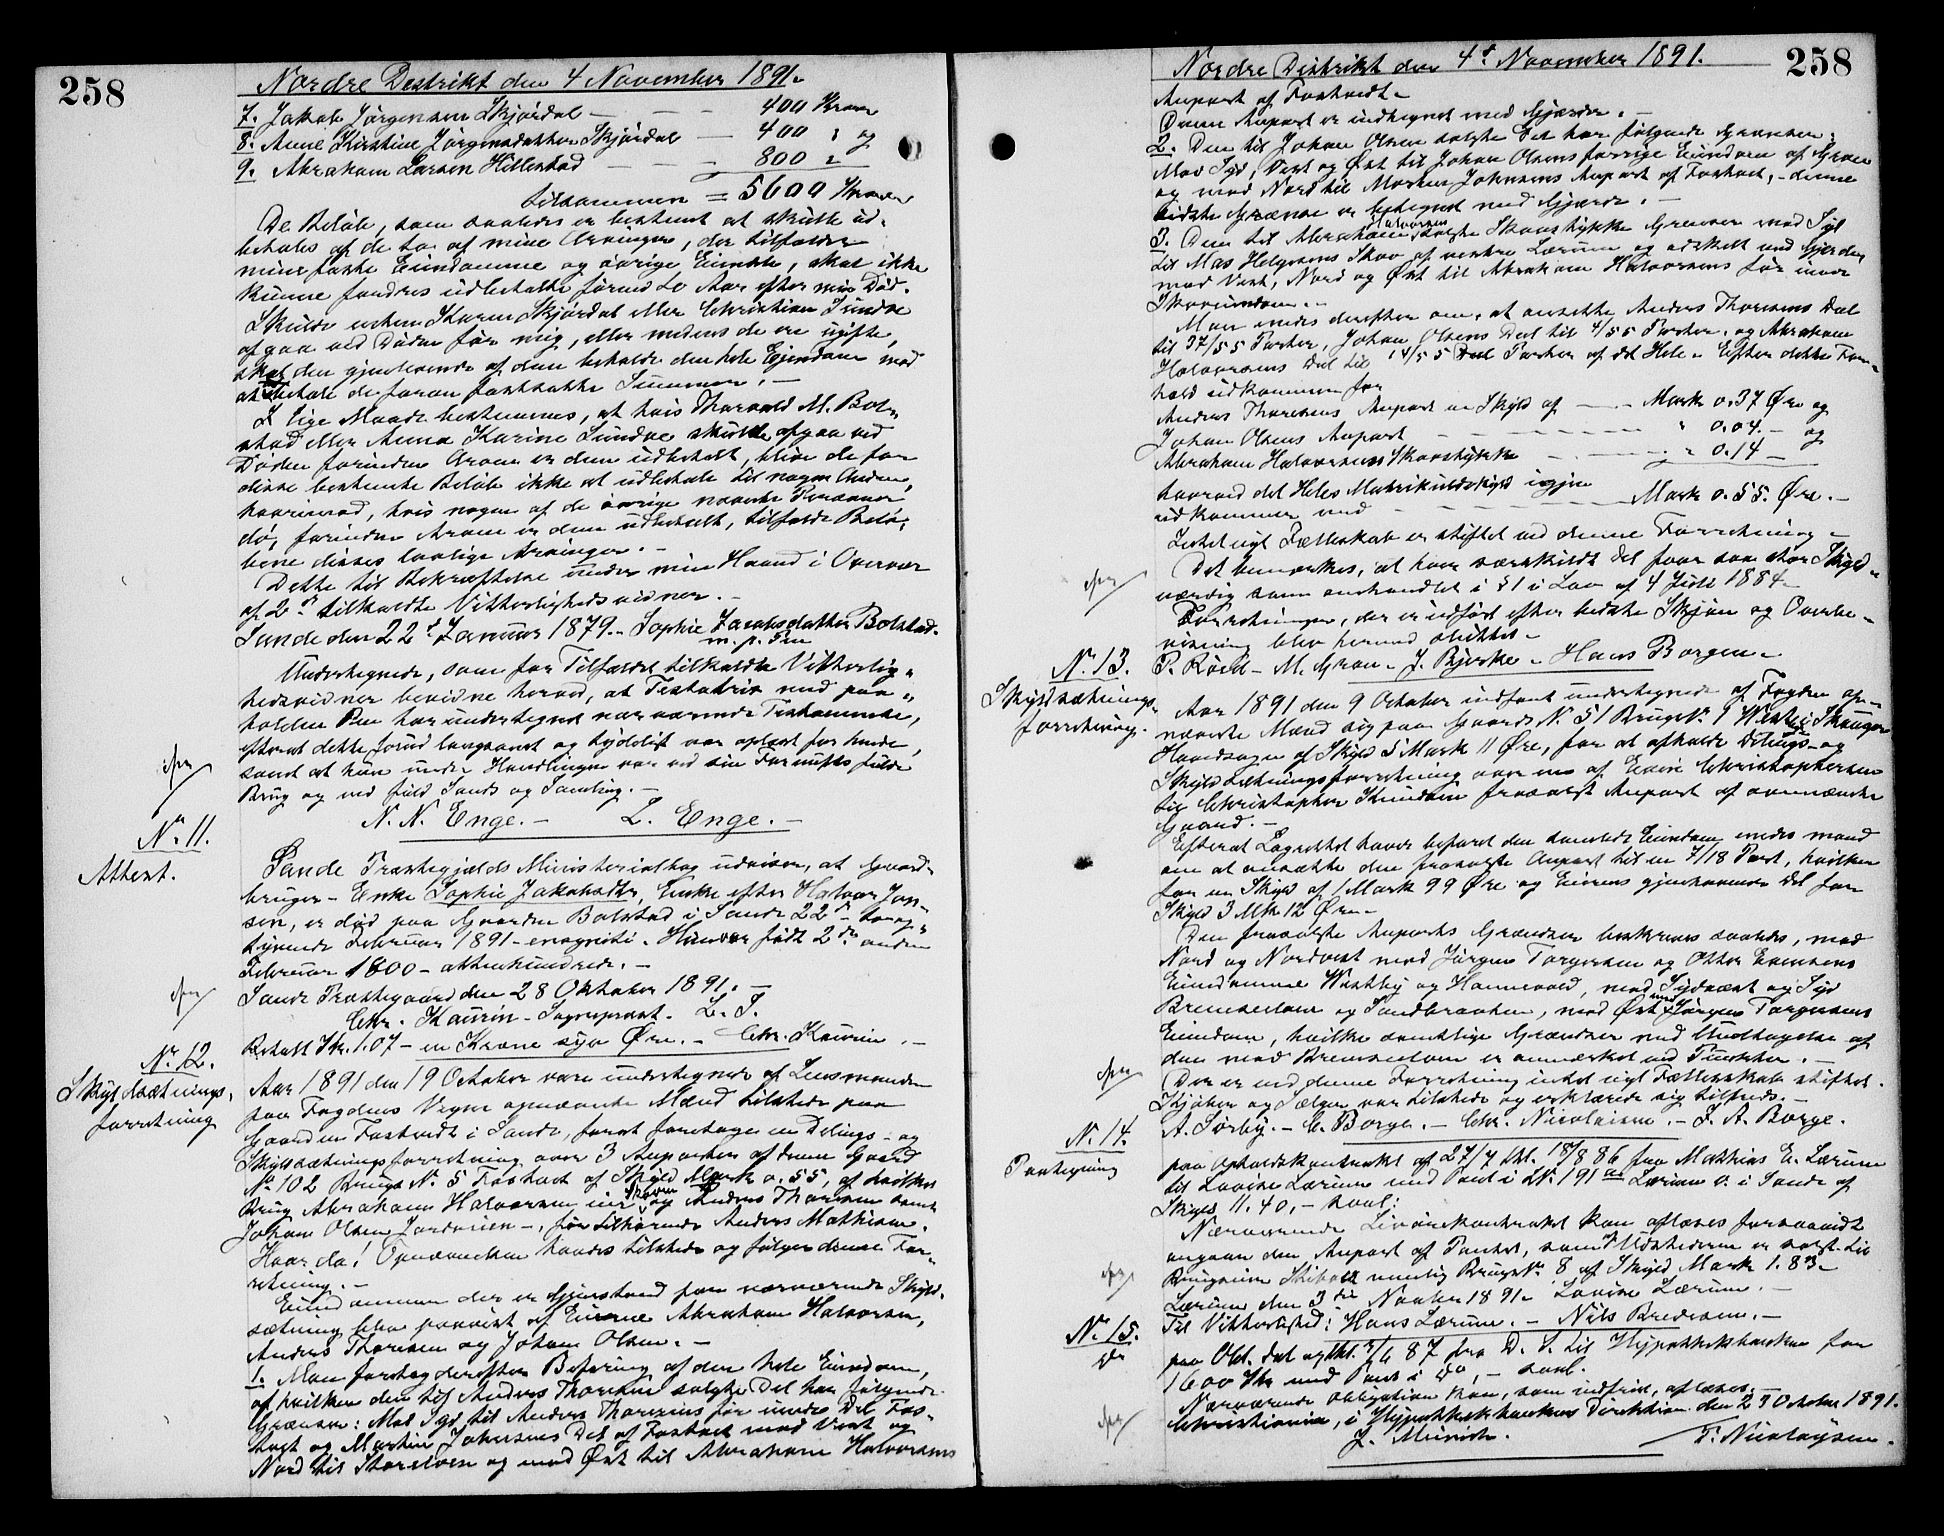 258
Nordre Destrikt den 4 November 1891.
7. Jakob Jörgensen Skjördal — 400 Kroner
8. Anne Kirstine Jörgensdatter Skjördal — 400 " og
9. Abraham Larsen Hillestad — 800 "
tilsammen = 5600 Kroner
De Beløb, som saaledes er bestemt at skulle ud-
betales af de to af mine Arvinger, der tilfalder
mine faste Eiendomme og övrige Eiendele, skal ikke
kunne fordres udbetalte förend to Aar efter min Död.
Skulde enten Karen Skjördal eller Christian Sundve
afgaa ved Döden för mig, eller medens de ere ugifte,
skal den gjenlevende af dem beholde den hele Ejendom med
at udbetale de foran fastsatte Summer. —
I lige Maade bestemmes, at hvis Thorvald M. Bol-
stad eller Anna Karine Sundve skulde afgaa ved
Döden forinden Arven er dem udbetalt, blive de for
disse bestemte Beløb ikke at udbetale til nogen Anden,
hvorimod, hvis nogen af de övrige nævnte Personer
dö, forinden Arven er dem udbetalt, tilfalde Belö-
bene disses lovlige Arvinger. —
Dette til Bekræftelse under min Haand i Overvær
af 2de tilkaldte Vitterlighedsvidner. —
Sande den 22de Januar 1879. Sophie Jacobsdatter Bolstad.
m. p. Pen
Undertegnede, som for Tilfældet tilkaldte Vitterlig-
hedsvidner bevidne herved, at Testatrix med paa-
holden Pen har undertegnet nærværende Testamente,
efterat dette forud langsomt og tydeligt var oplæst for hende,
samt at hun under Handlingen var ved sin Fornufts fulde
Brug og ved fuld Sands og Samling. —
N. N. Enge. — L. Enge. —
No 11.
Attest.
Sande Præstegjelds Ministerialbog udviser, at Gaard-
bruger-Enke Sophie Jakobsdtr, Enke efter Halvor Jan-
sen, er död paa Gaarden Bolstad i Sande 22de – to og
tyvende Februar 1891 – enogniti. Hun var födt 2den anden
Februar 1800 – attenhundrede. —
Sande Præstegaard den 28 Oktober 1891. —
Chr. Kaurin – Sogneprest. L. S.
Betalt Kr. 1.07 – en Krone syv Øre. — Chr. Kaurin. —
No 12.
Skyldsætnings-
forretning
Aar 1891 den 19 October vare undertegnede af Lensmanden
paa Fogdens Vegne opnævnte Mænd tilstede paa
Gaarden Fosteved i Sande, forat foretage en Delings- og
Skyldsætningsforretning over 3 Anparter af denne Gaard
No 102 Brugs No 5 Fostvedt af Skyld Mark 0.55, af hvilket
Brug Abraham Halvorsen eier Skoven og Anders Thoresen samt
Johan Olsen Jordveien –, för tilhörende Anders Mathisen.
Hvor da! Opnævnelsen havdes tilstede og fölger denne For-
retning. —
Eiendommen der er Gjenstand for nærværende Skyld-
sætning blev paavist af Eierne Abraham Halvorsen,
Anders Thoresen og Johan Olsen. —
1. Man foretog derefter Befaring af den hele Eiendom,
af hvilken den til Anders Thoresen solgte Del har fölgende
Grændser: Mod Syd til Anders Thoresens för iuede Del Fos-
tvedt og Martin Johnsens Del af Fostvedt mod Vest og
Nord til Storelven og mod Øst til Abraham Halvorsens
258
Nordre Distrikt den 4de November 1891.
Anpart af Fostvedt.
Denne Anpart er indhegnet med Gjærde. —
2. Den til Johan Olsen solgte Del har fölgende Grænser:
Mod Syd, Vest og Øst til Johan Olsens forrige Eiendom af
og mod Nord til Martin Johnsens Anpart af Fostvedt, – denne
sidste Grænse er betegnet med Gjærde. —
3. Den til Abraham Halvorsen solgte Skovstykke Grænser mod Syd
til Mas Helgesens Skov af vestre Lærum og adskilt med Gjerder
mod Vest, Nord og Øst til Abraham Halvorsens för iuede
Skoveiendom. —
Man enedes derefter om, at ansætte Anders Thoresens Del
til 37/55 Parter, Johan Olsens Del til 4/55 Parter, og Abraham
Halvorsens Del til 14/55 Parter af det Hele. Efter dette For-
hold udkommer for
Anders Thoresens Anpart en Skyld af — Mark 0.37 Øre og
Johan Olsens Anpart — " 0.04 – og
Abraham Halvorsens Skovstykke — " 0.14 —
hvorved det Heles Matrikulskyld igjen
udkommer med — Mark 0.55. Øre. —
Intet nyt Fællesskab er stiftet ved denne Forretning —
Det bemærkes, at hver særskildt Del faar saa stor Skyld-
værdig som omhandlet i § 1 i Lov af 4 Juli 1884
Forretningen, der er udfört efter bedste Skjön og Overbe-
visning blev herved sluttet —
P. Röed – M. Gran. J. Bjerke – Hans Borgen —
No 13.
Skyldsætnings-
forretning.
Aar 1891 den 9 October indfandt undertegnede af Fogden op-
nævnte Mænd sig paa Gaards No 51 Brugs No 1 Westby i Skouger
Hovedsogn af Skyld 5 Mark 11 Øre, for at afholde Delings- og
Skyldsætningsforretning over en af Eier Christophersen
til Christopher Knudsen fraasolgt Anpart af ovennævnte
Gaard. —
Efterat Lagrettet havde befaret den samlede Eiendom enedes mand
om at ansætte den frasolgte Anpart til en 7/18 Part, hvilken
faar en Skyld af 1 Mark 99 Øre og Eierens gjenhavende Del faar
Skyld 3 Mk 12 Øre —
Den frasolgte Anparts Grændser beskrives saaledes, mod
Nord og Nordvest med Jörgen Torgersen og Otter Evensens
Eiendomme Westby og Hannevold, mod Sydvest og Syd
Bremsestoen og Sandbraaten, mod Øst med Jörgen Torgersens
Eiendom, hvilke samtlige Grændser med Undtagelse af
den mod Bremsestoen er anmærket ved Punkter. —
Der er ved denne Forretning intet nyt Fællesskab stiftet.
Kjöber og Sælger var tilstede og erklærede sig tilfreds. —
A. Sörby. – C. Borge. – Chr. Nicolaisen. – J. A. Borge.
No 14.
Paategning
paa Opholdskontrakt af 27/7 thl. 18/8 86 fra Mathias E. Lærum
til Lovise Lærum med Pant i L.No 191 Lærum v. i Sande af
Skyld 11.40, – saal:
Nærværende Livörekontrakt kan aflæses forsaavidt
angaar den Anpart af Pantet, som af Udstederen er solgt til
Brugseier nemlig Brugs No 8 af Skyld Mark 1.83 —
Lærum den 3die Novbr 1891. Lovise Lærum. —
Til Vitterlighed: Hans Lærum. — Nils Bredesen. —
No 15.
do
paa Obl. dat og thl. 5/4 87 fra D. S. til Hypothekbanken for
1600 Kr med Pant i do, – saal:
Nærværende Obligation kan, som indfriet, aflæses. —
Christiania, i Hypothekbankens Direktion den 290ctober 1891.
J. Meinich. T. Nicolaysen.